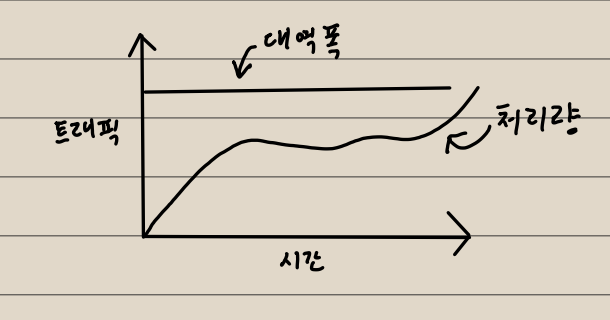 대역폭
트래픽
처리량
시간